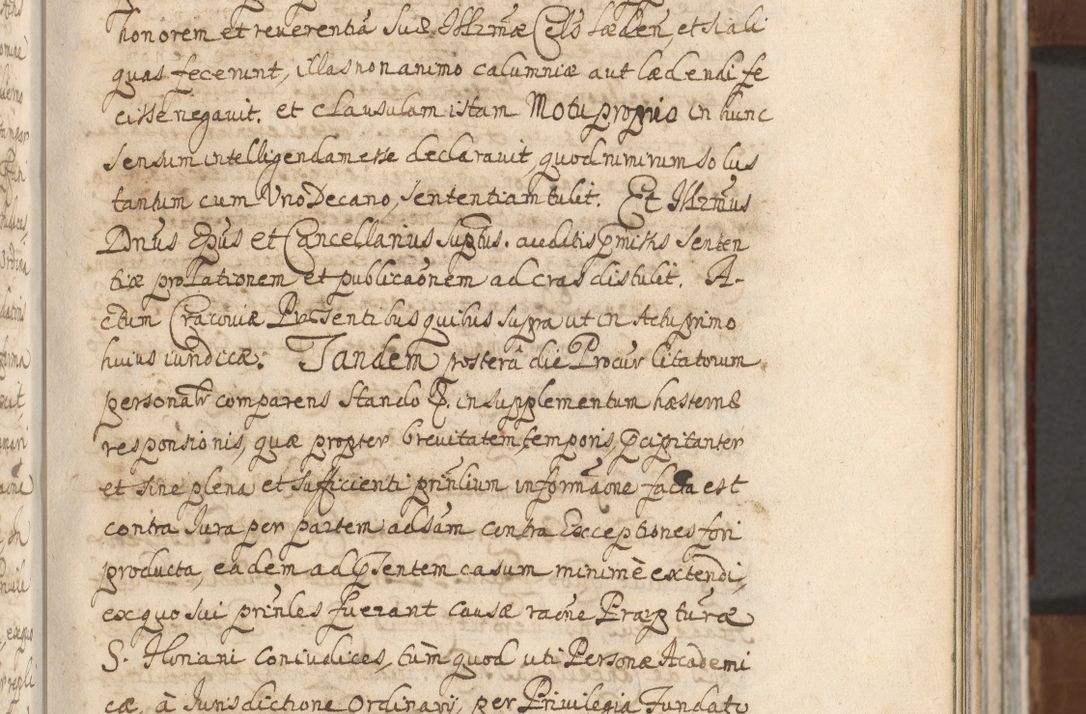 honorem et reuerentiā suæ Illrmæ Cels͞ læden, et si ali
quas fecerunt, illas non animo calumniæ aut lædendi fe
cisse negavit. et clausulam istam Motu proprio in hunc
sensum intelligendam esse declaravit, quod nimirum solus
tantum cum Uno Decano, sententiam tulit. Et Illrmus
Dnus Epus et Cancellarius suptus. auditis pmissis senten
tiæ prolationem et publicaonem ad cras distulit. A-
ctum Cracoviæ Præsentibus quibus supra ut in Actu primo
huius iuridicæ. Tandem posterâ die Procur citatorum
personalr comparens stando P. in supplementum hæsternæ
responsionis, quæ propter brevitatem temporis, pcipitanter
et sine plena et sufficienti prinlium informaone facta est
contra Iura per partem adsam contra Exceptiones fori
producta, eadem ad psentem casum minimè extendi,
ex quo sui prinles fuerant causæ raone Præpturæ
S. Floriani Coniudices, tùm quod uti Personæ Academi
cæ, à Iurisdictione Ordinarij, per Privilegia Fundato